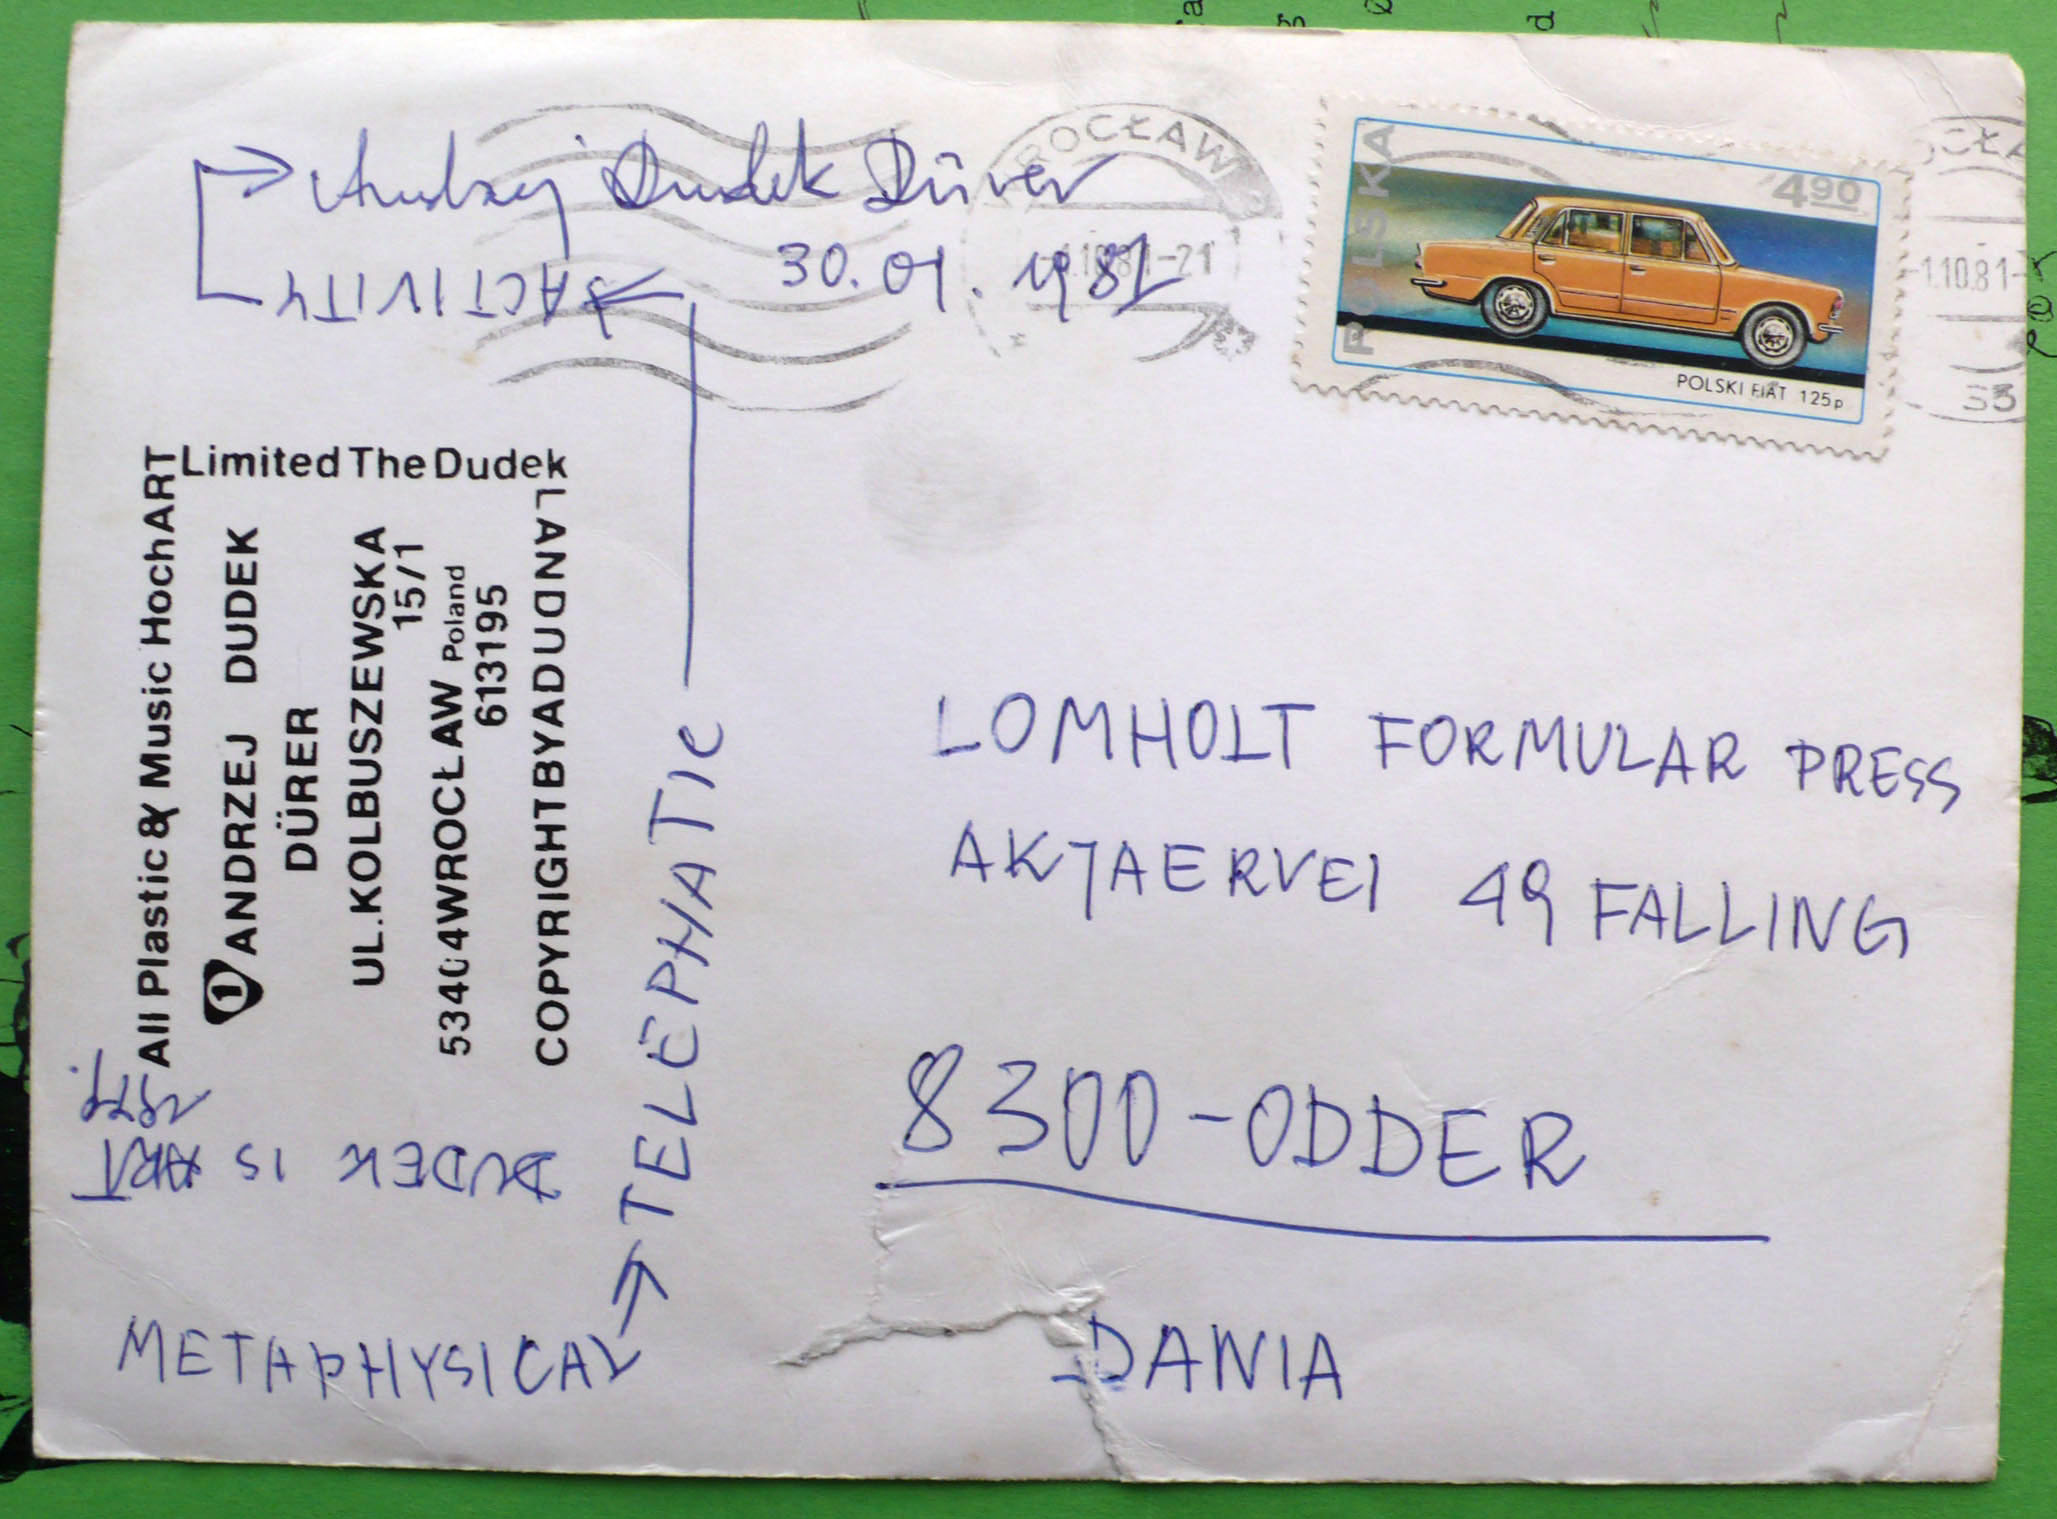 Andrzej Dudek Dürer
30.09.1981
ACTIVITY
WROCŁAW
1.10.81-21
POLSKA
4.90
POLSKI FIAT 125p
1.10.81-
33
All Plastic & Music HochART
Limited The Dudek
1 ANDRZEJ DUDEK
DÜRER
UL.KOLBUSZEWSKA
15/1
53404WROCŁAW Poland
613195
COPYRIGHTBYADUDNAL
DUDEK IS ART
METAPHYSICAL
TELEPHATIC
LOMHOLT FORMULAR PRESS
AKJAERVEI 49 FALLING
8300-ODDER
DANIA